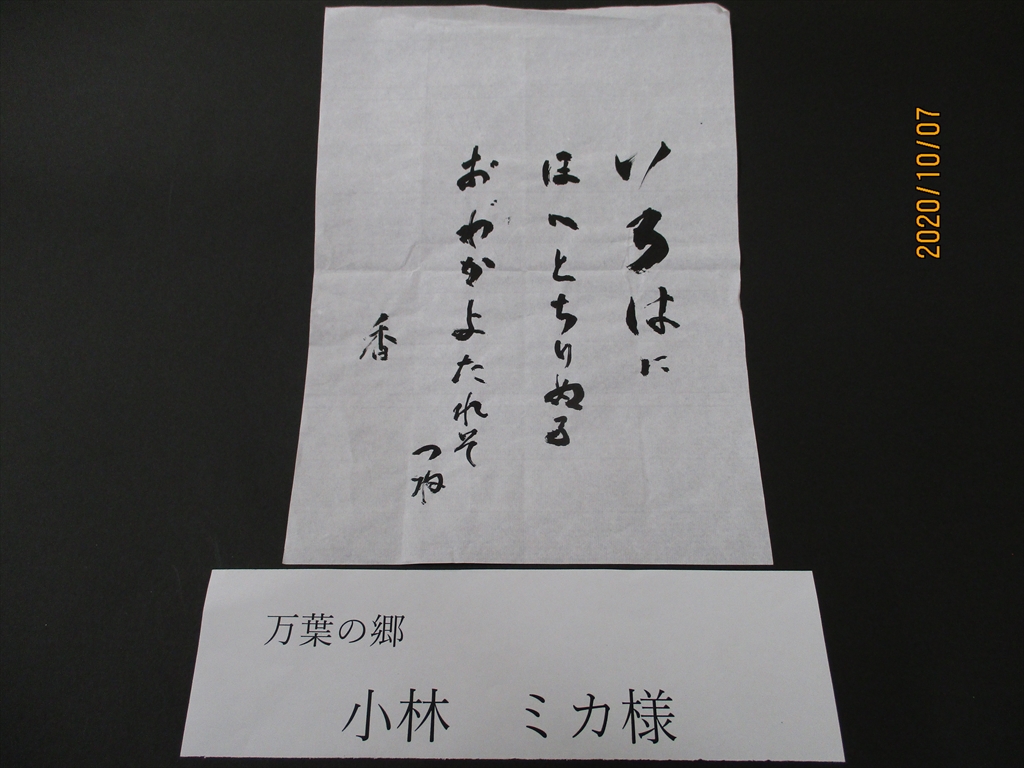 いろはに
ほへとちりぬる
おわかよたれそ
つね
香
万葉の郷
小林　ミカ様
2020/10/07